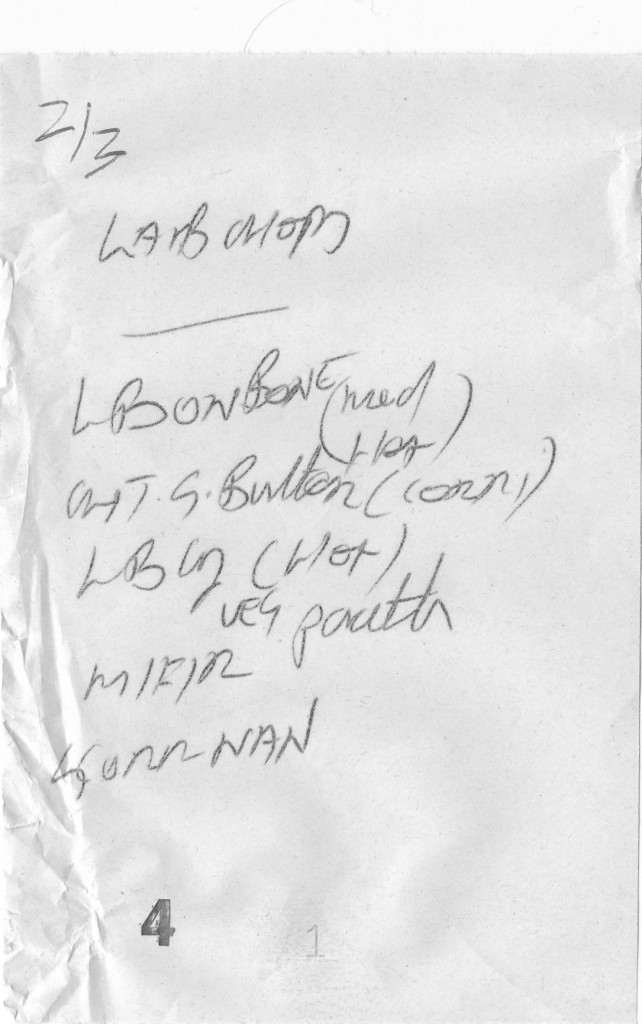 2/3
LAMB CHOPS
LB ON BONE (med
HOT)
CHT. G. Button (CORRI)
LB Cy (HOT)
VEG parath
M/F/R
KORR NAN
4
1